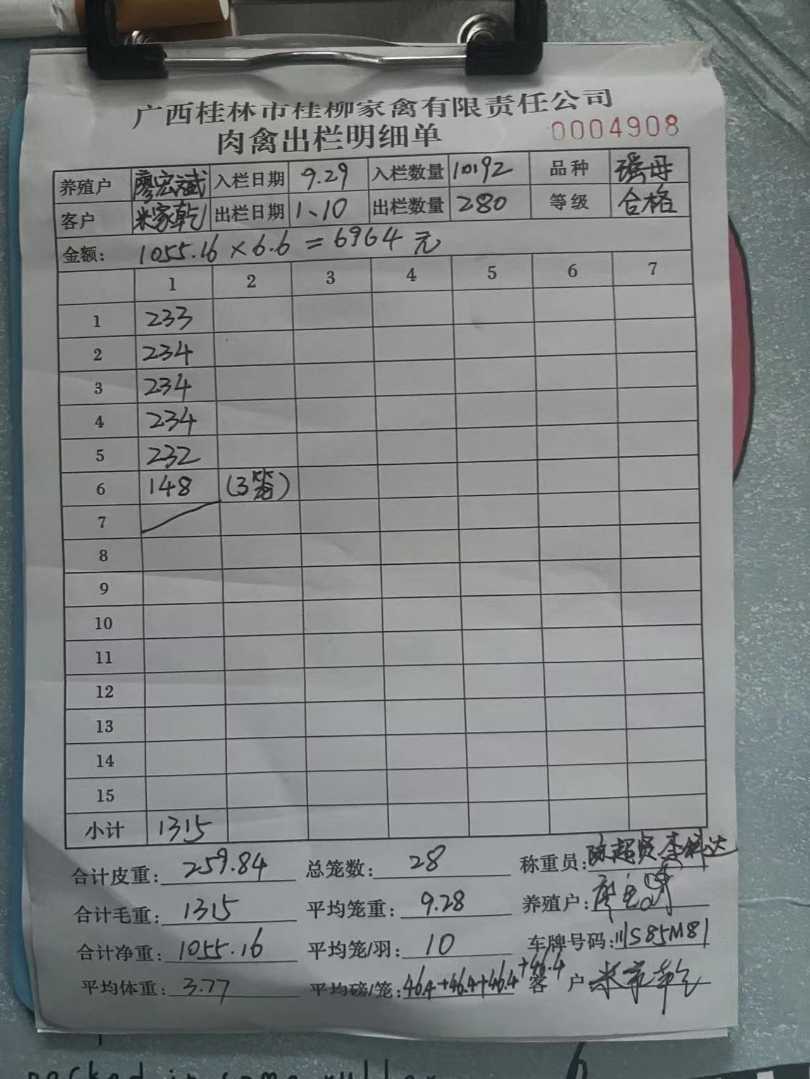 广西桂林市桂柳家禽有限责任公司
肉禽出栏明细单 0004908
养殖户 廖宏斌 入栏日期 9.29 入栏数量 10192 品种
客户 米家乾 出栏日期 1、10 出栏数量 280 等级 合格
金额: 1055.16×6.6=6964元
1 2 3 4 5 6 7
1 233
2 234
3 234
4 234
5 232
6 148 (3笼)
7
8
9
10
11
12
13
14
15
小计 1315
合计皮重: 259.84 总笼数: 28 称重员:
合计毛重: 1315 平均笼重: 9.28 养殖户:
合计净重: 1055.16 平均笼/羽: 10 车牌号码: 川S85M81
平均体重: 3.77 平均磅/笼: 46.4+46.4+46.4+46.4 客户 米家乾
packed in some